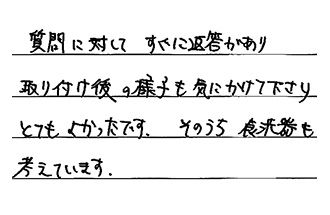 質問に対して すぐに返答があり
取り付け後の様子も気にかけて下さり
とてもよかったです. そのうち食洗器も
考えています.